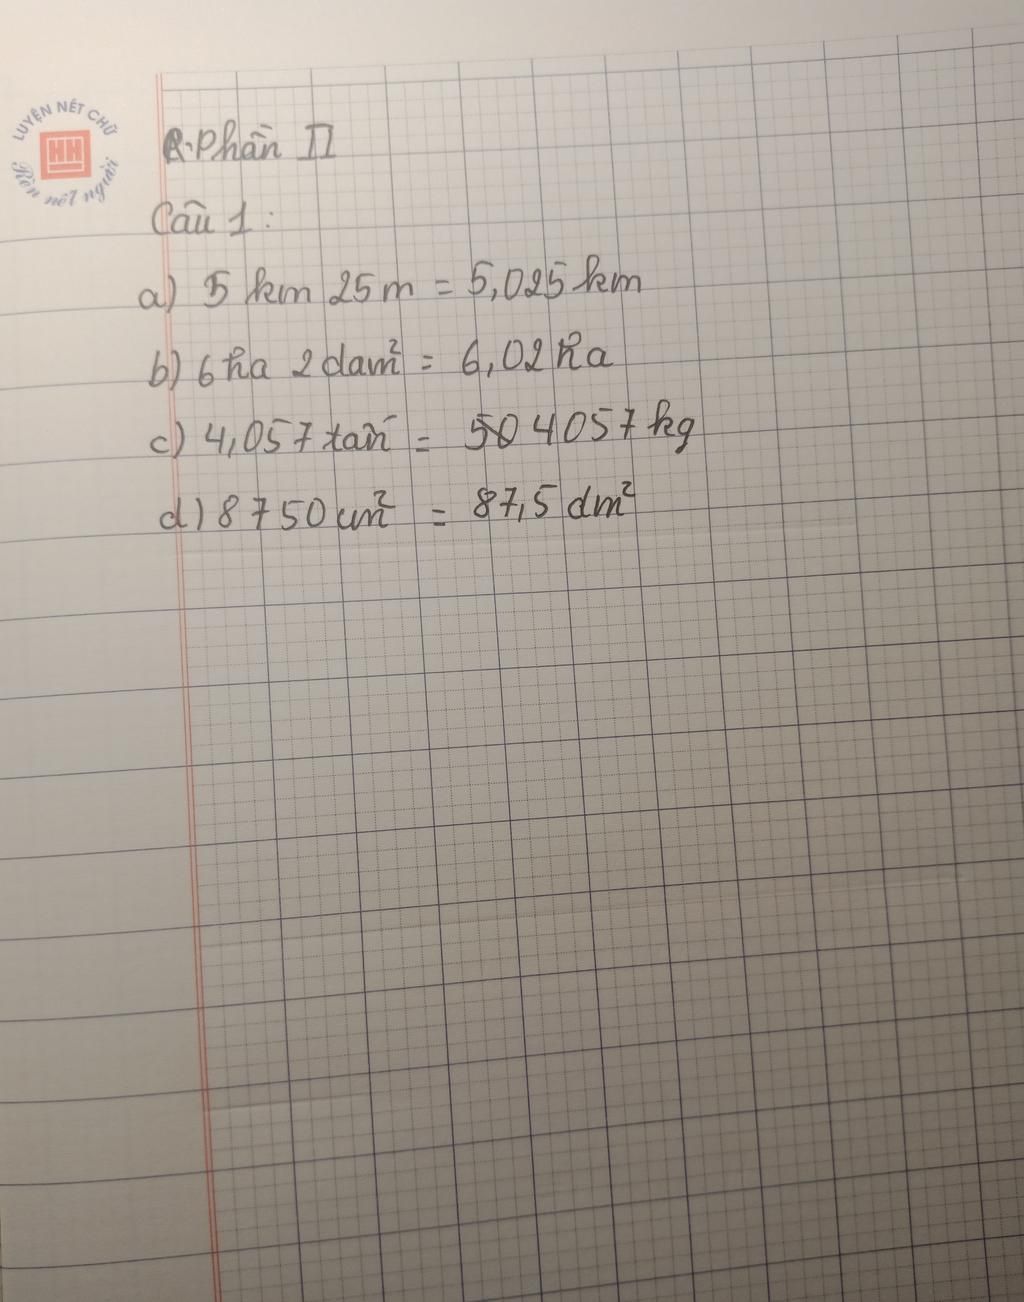 LUYỆN NÉT CHỮ
HH
Rèn nết người
Phần II
Câu 1:
a) 5 km 25 m = 5,025 km
b) 6 ha 2 dam² = 6,02 ha
c) 4,057 tấn = 504057 kg
d) 8750 cm² = 87,5 dm²